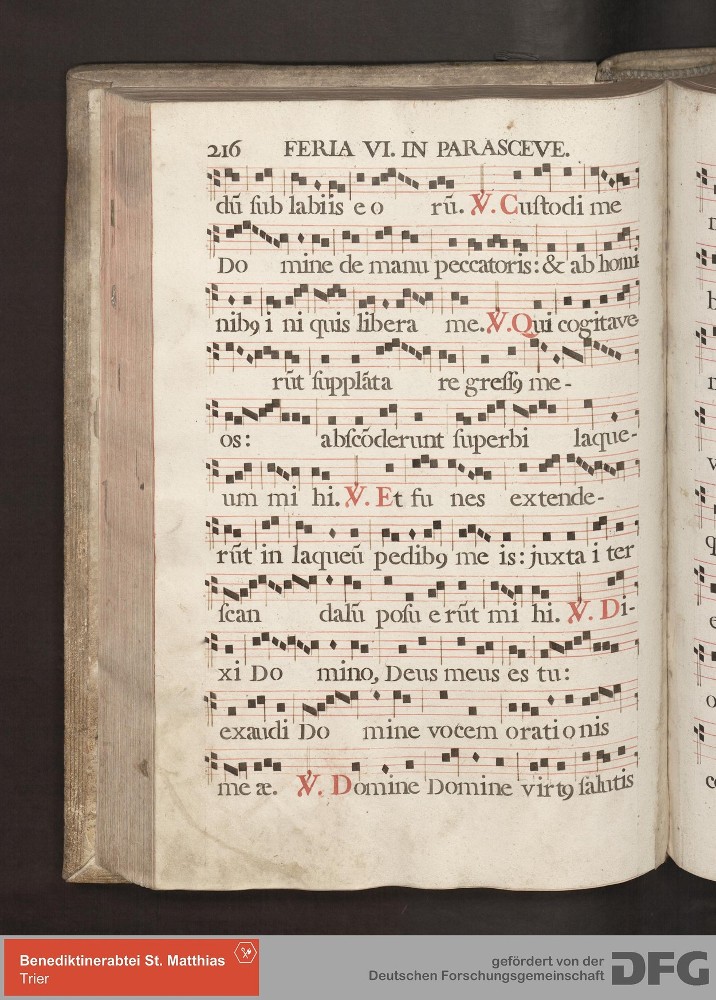 216 FERIA VI. IN PARASCEVE.
dū sub labiis e o rū. ℣. Custodi me
Do mine de manu peccatoris: & ab homi
nibꝯ i ni quis libera me. ℣. Qui cogitave
rūt supplāta re gressꝯ me-
os: abscōderunt superbi laque-
um mi hi. ℣. Et fu nes extende-
rūt in laqueū pedibꝯ me is: juxta i ter
scan dalū posu e rūt mi hi. ℣. Di-
xi Do mino, Deus meus es tu:
exaudi Do mine vocem orati o nis
me æ. ℣. Domine Domine virtꝯ salutis
Benediktinerabtei St. Matthias
Trier
gefördert von der
Deutschen Forschungsgemeinschaft
DFG